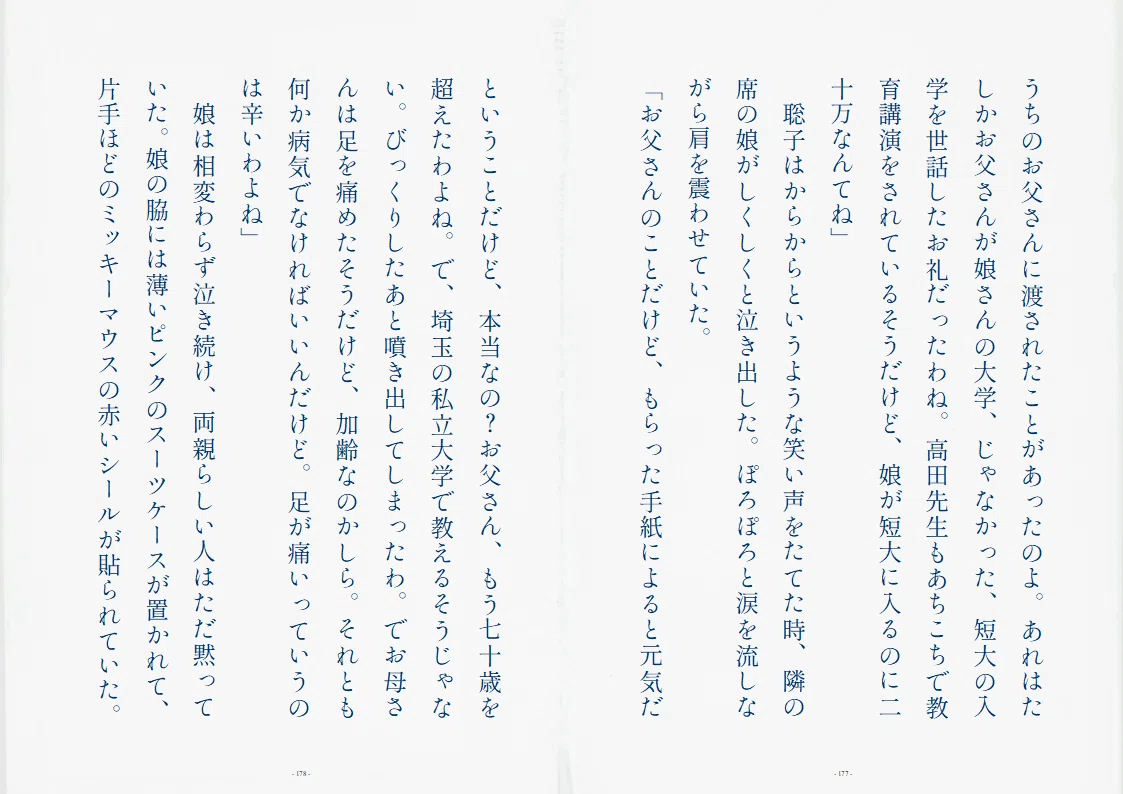 うちのお父さんに渡されたことがあったのよ。あれはた
しかお父さんが娘さんの大学、じゃなかった、短大の入
学を世話したお礼だったわね。高田先生もあちこちで教
育講演をされているそうだけど、娘が短大に入るのに二
十万なんてね」
　聡子はからからというような笑い声をたてた時、隣の
席の娘がしくしくと泣き出した。ぽろぽろと涙を流しな
がら肩を震わせていた。
「お父さんのことだけど、もらった手紙によると元気だ
- 177 -
ということだけど、本当なの？お父さん、もう七十歳を
超えたわよね。で、埼玉の私立大学で教えるそうじゃな
い。びっくりしたあと噴き出してしまったわ。でお母さ
んは足を痛めたそうだけど、加齢なのかしら。それとも
何か病気でなければいいんだけど。足が痛いっていうの
は辛いわよね」
　娘は相変わらず泣き続け、両親らしい人はただ黙って
いた。娘の脇には薄いピンクのスーツケースが置かれて、
片手ほどのミッキーマウスの赤いシールが貼られていた。
- 178 -